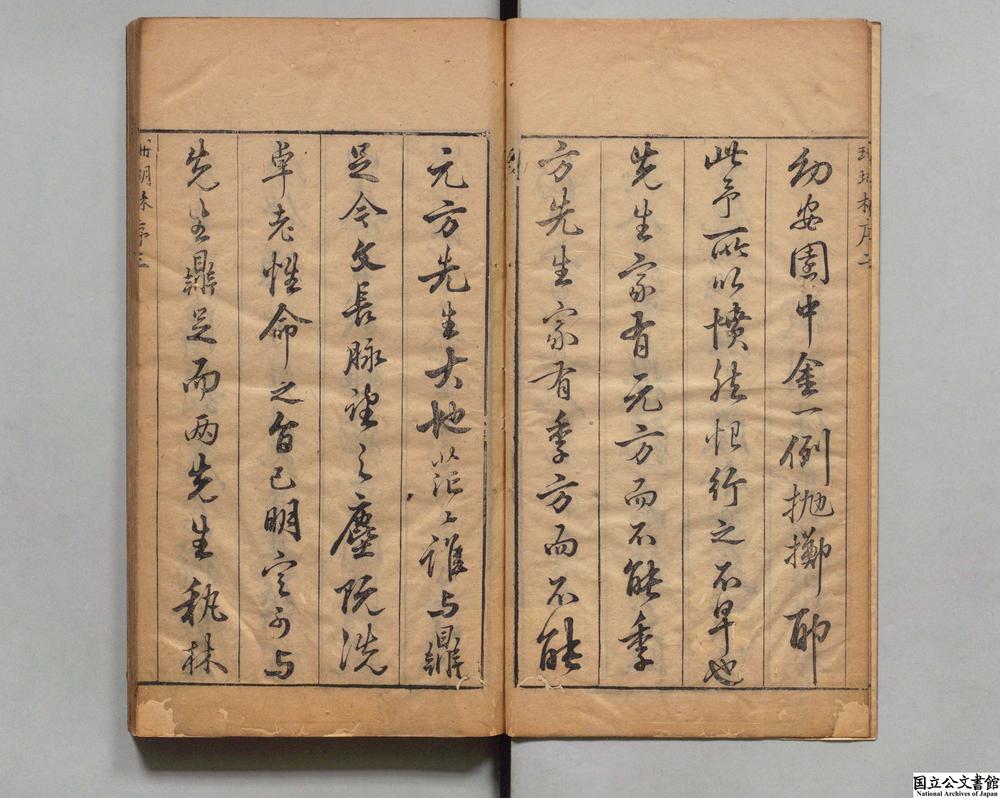 幼安園中金一例抛擲耶
此予所以憤然恨行之不早也
先生家有元方而不能季
方先生家有季方而不能
元方先生大地茫〻誰与鼎
足今文長脉望之塵既洗
卓老性命之旨已明定可与
先生鼎足而両先生秇林
国立公文書館
National Archives of Japan